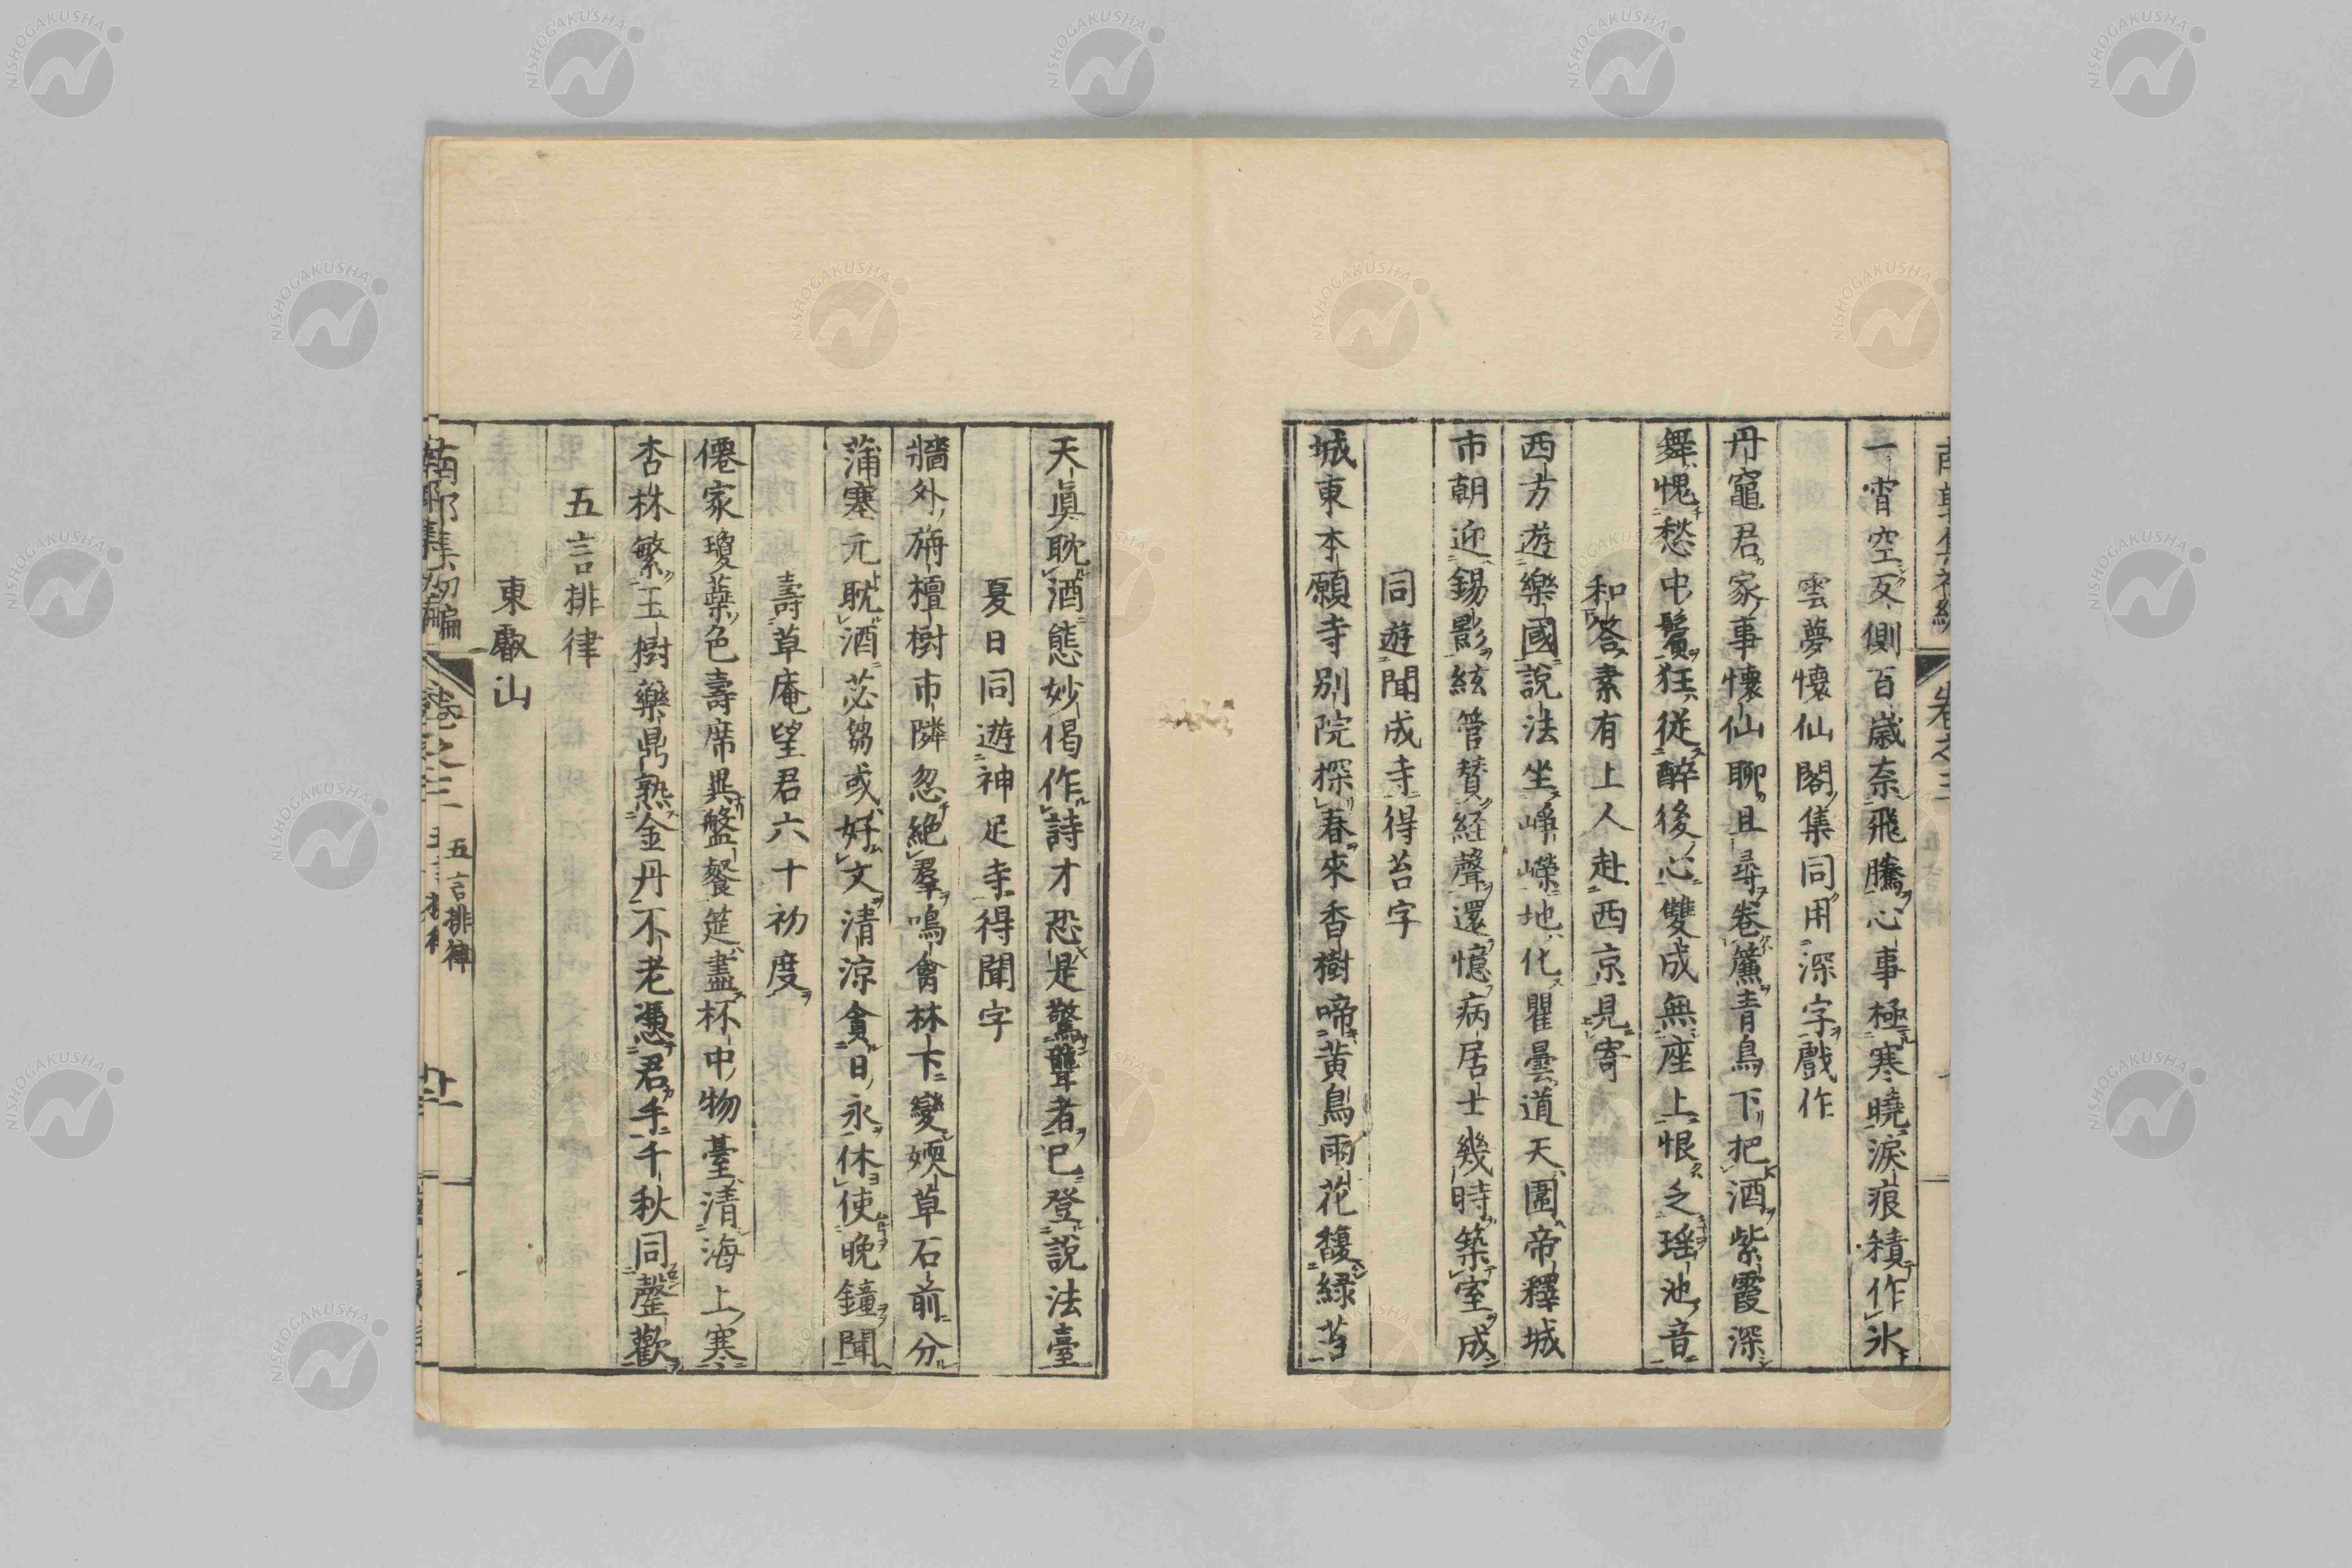 一宵空反側百歳奈飛騰心事極寒曉淚痕積作氷
雲夢懷仙閣集同用深字戲作
丹竈君家事懷仙聊且尋卷簾青鳥下把酒紫霞深
舞愧愁中鬢狂從醉後心雙成無座上恨乏瑶池音
和答素有上人赴西京見寄
西方遊樂國說法坐崢嶸地化瞿曇道天圍帝釋城
市朝迎錫影絃管賛経聲還憶病居士幾時築室成
同遊聞成寺得苔字
城東本願寺別院探春來香樹啼黃鳥雨花馥緑苔
天眞耽酒態妙偈作詩才恐是驚聾者已登說法臺
夏日同遊神足寺得聞字
牆外旃檀樹市隣忽絶羣鳴禽林下變媆草石前分
蒲塞元耽酒苾芻或好文清涼貪日永休使晚鐘聞
壽草庵望君六十初度
僊家瓊蘂色壽席異盤餐筵盡杯中物臺清海上寒
杏株繁玉樹藥鼎熟金丹不老憑君手千秋同罄歡
五言排律
東叡山
卷之三
五言排律
NISHOGAKUSHA